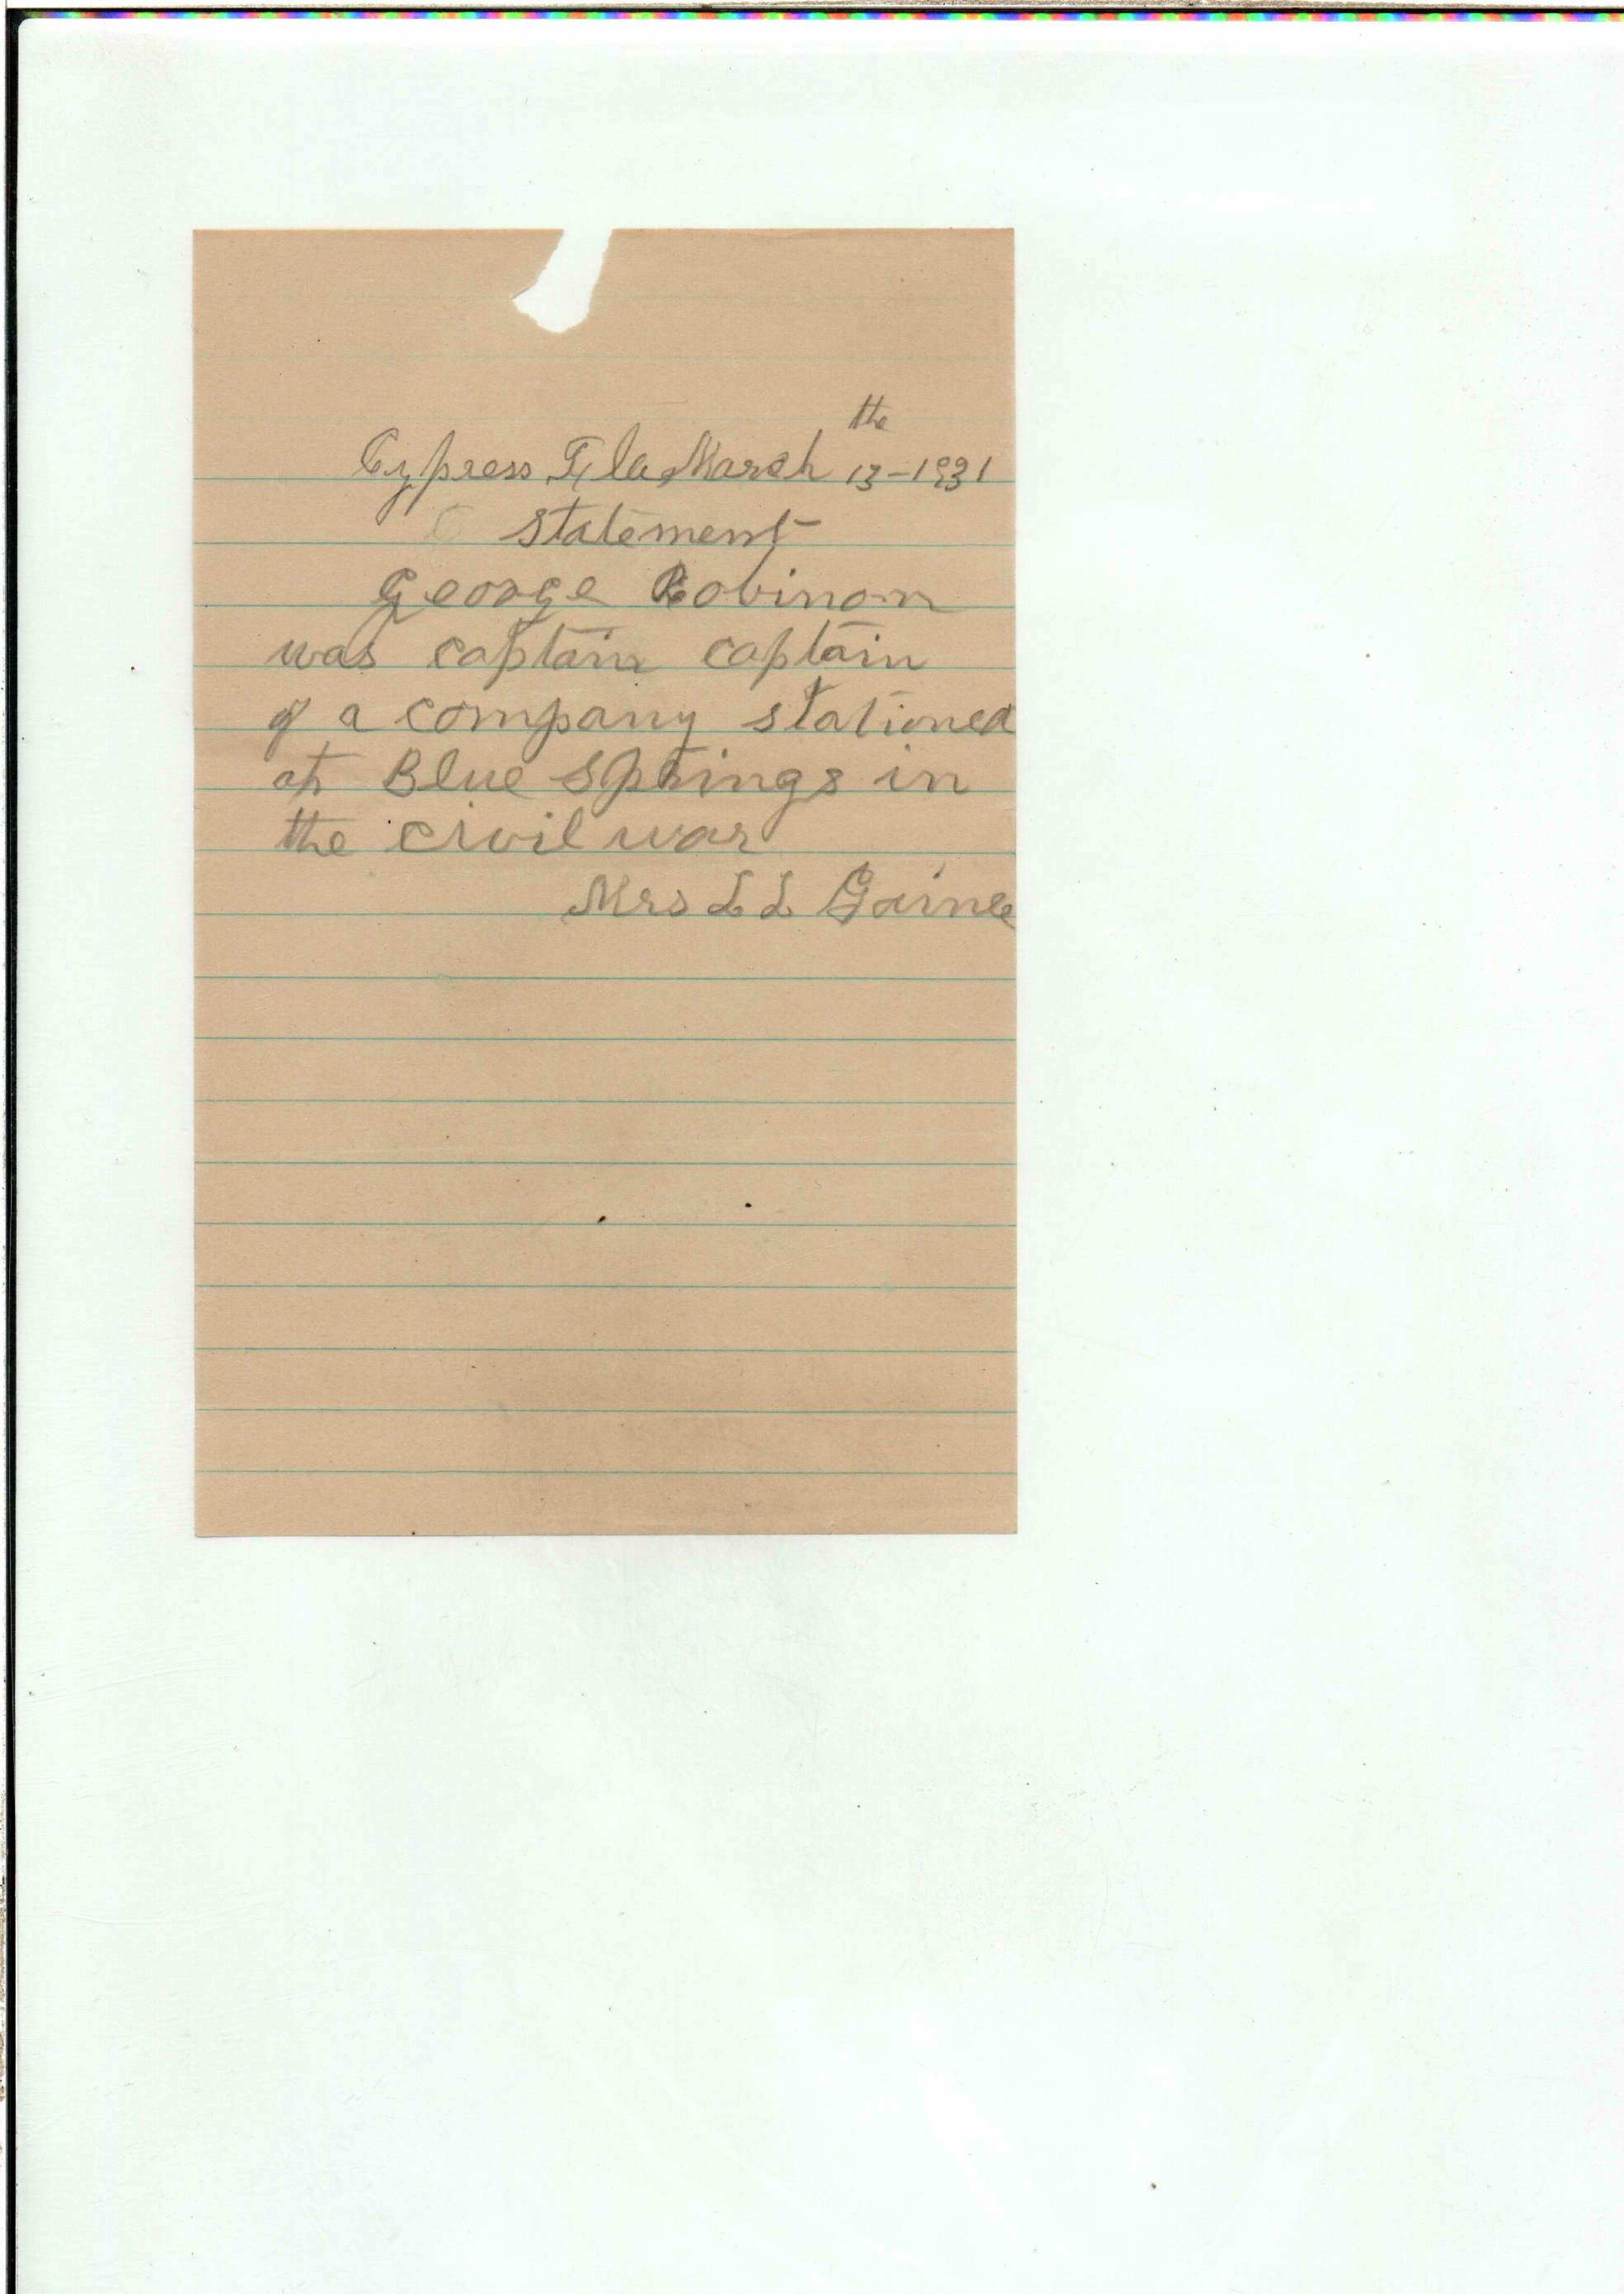 the
Cypress Fla March 13-1931
Statement
George Robinon
was captain captain
of a company stationed
at Blue Springs in
the civil war
Mrs L L Gaine